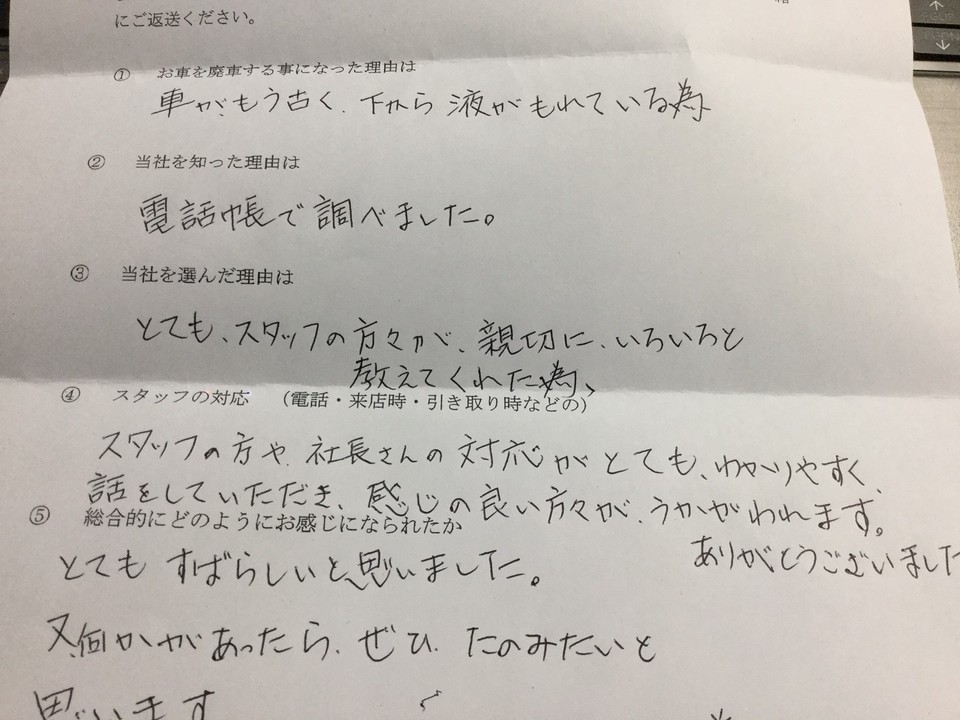 にご返送ください。
① お車を廃車する事になった理由は
車が、もう古く、下から液がもれている為
② 当社を知った理由は
電話帳で調べました。
③ 当社を選んだ理由は
とても、スタッフの方々が、親切に、いろいろと
教えてくれた為、
④ スタッフの対応 （電話・来店時・引き取り時などの）
スタッフの方や、社長さんの対応がとても、わかりやすく、
話をしていただき、感じの良い方々が、うかがわれます。
⑤ 総合的にどのようにお感じになられたか
ありがとうございました
とてもすばらしいと、思いました。
又、何かがあったら、ぜひ、たのみたいと
思います